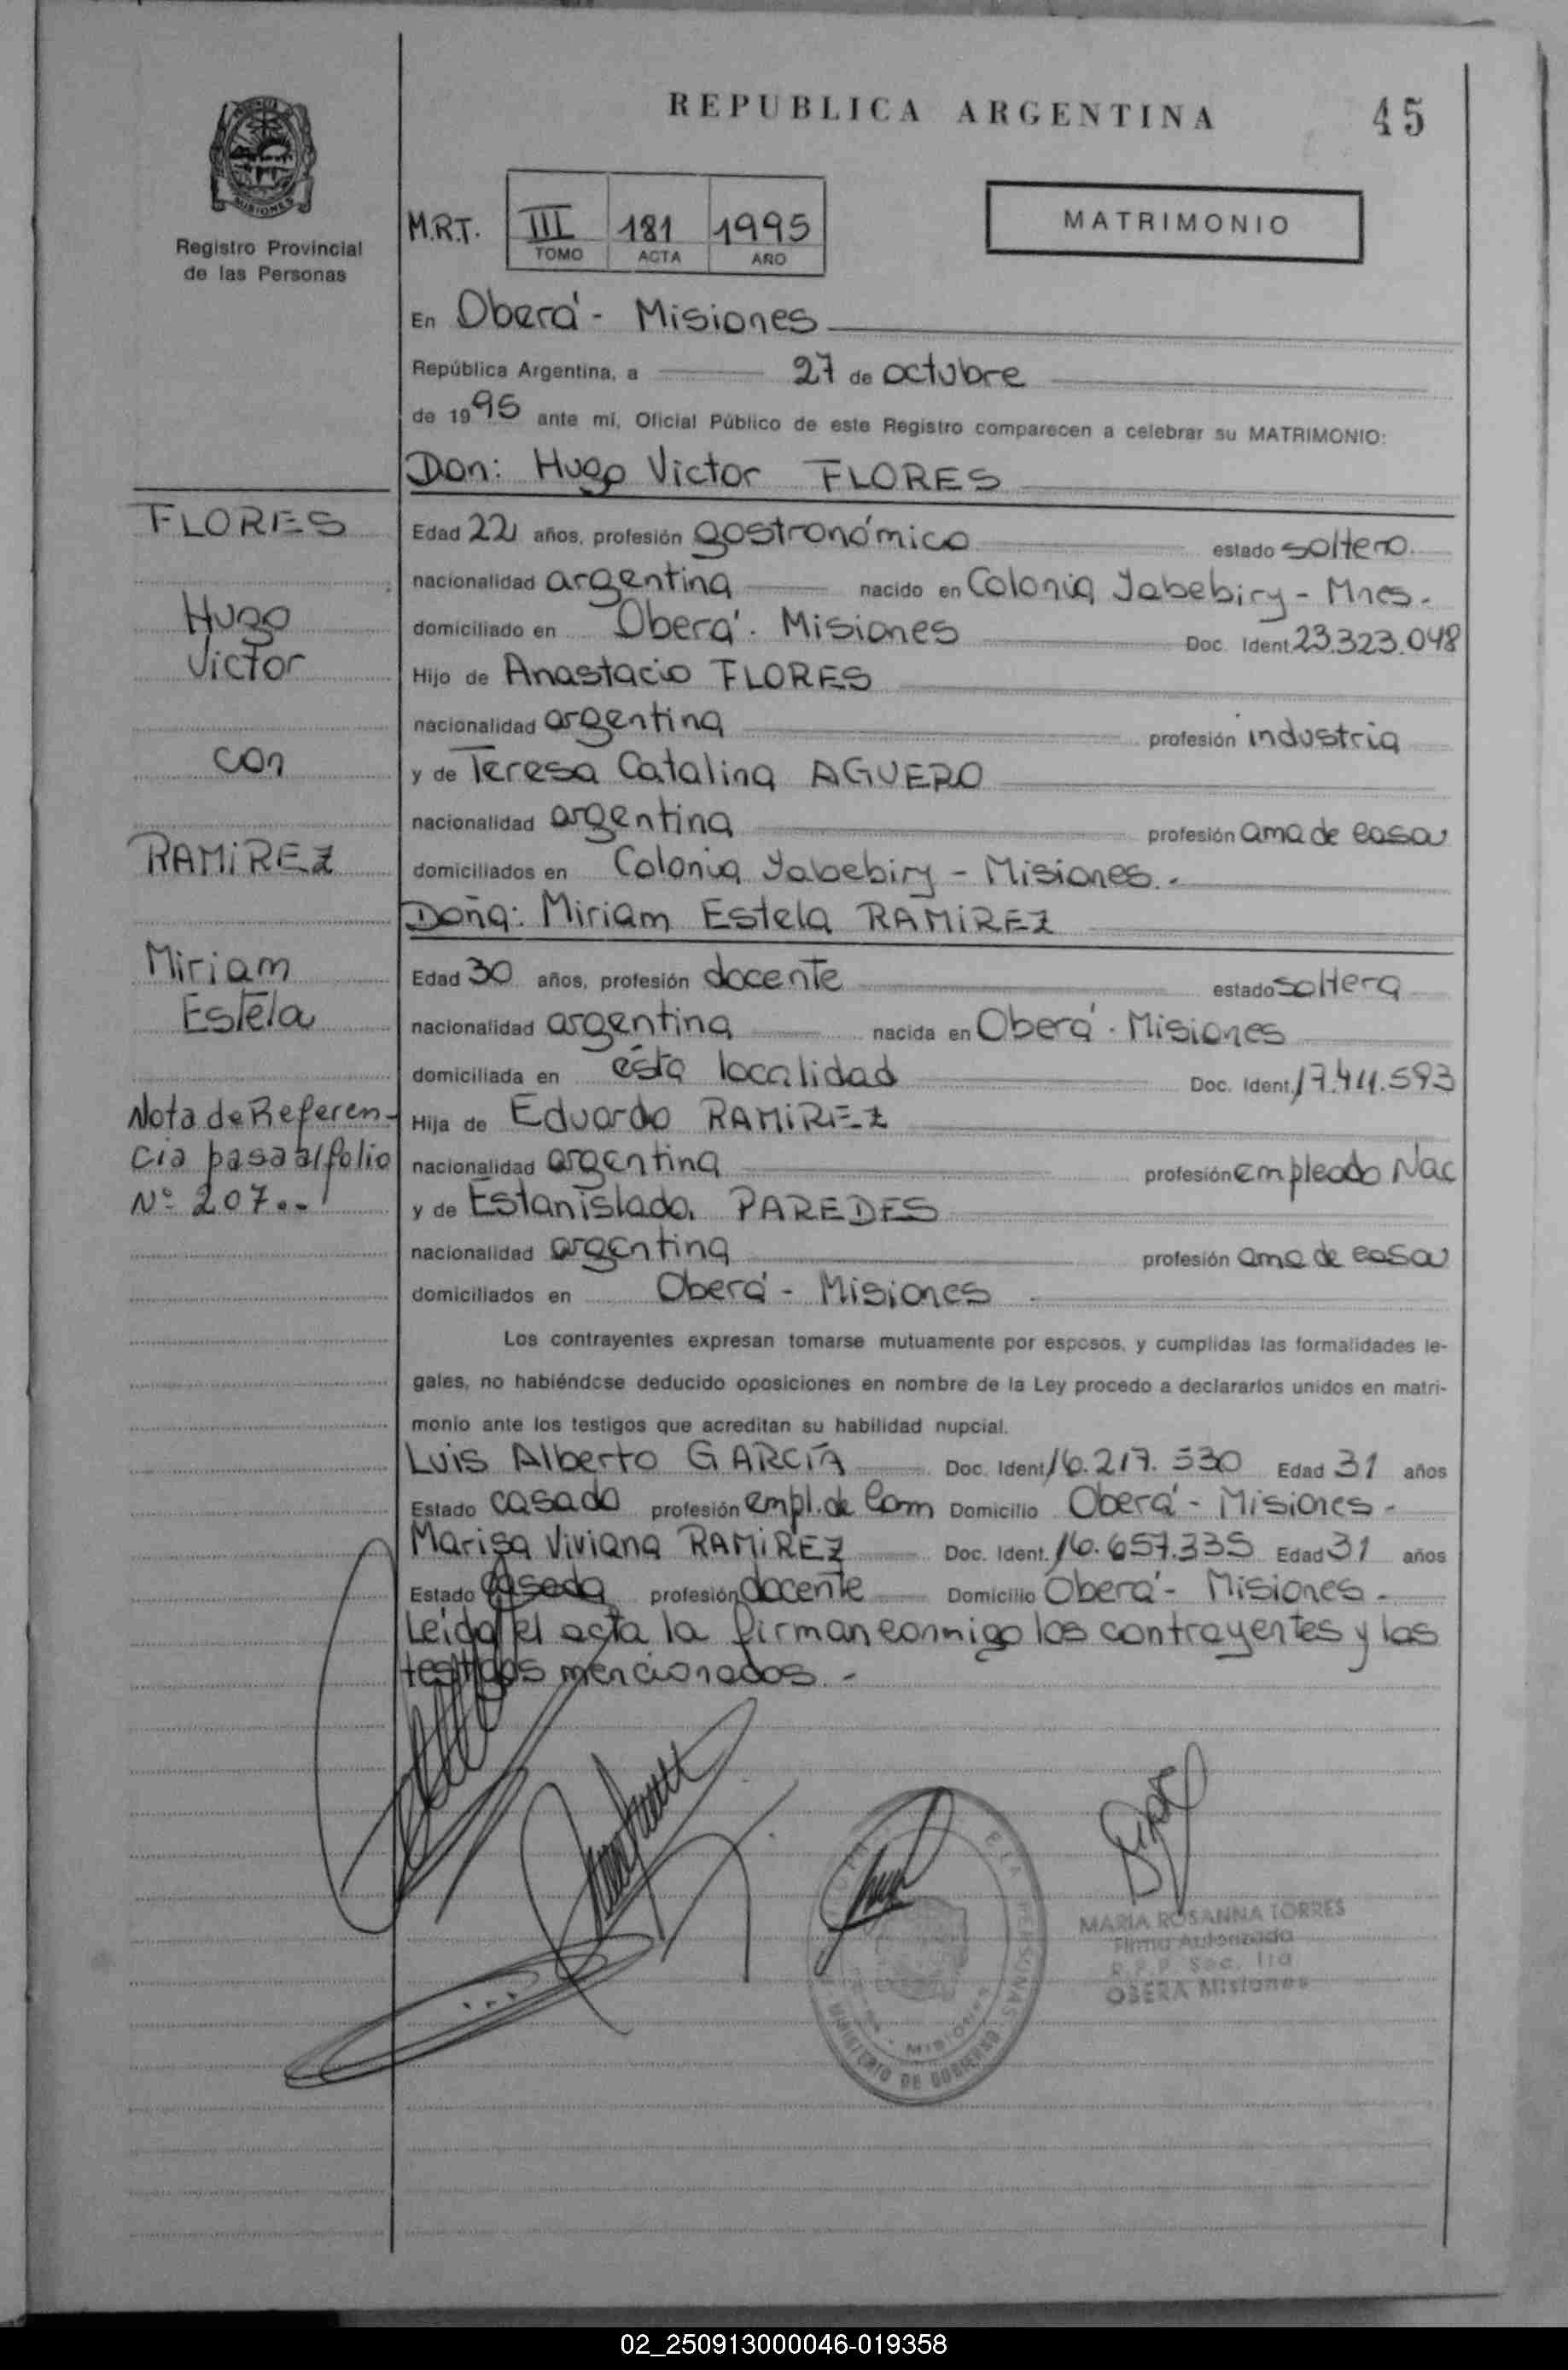 REPUBLICA ARGENTINA
45
MISIONES
Registro Provincial
de las Personas
M.R.T.
III 181 1995
TOMO ACTA AÑO
MATRIMONIO
En Oberá - Misiones
República Argentina, a 27 de octubre
de 1995 ante mí, Oficial Público de este Registro comparecen a celebrar su MATRIMONIO:
Don: Hugo Victor FLORES
Edad 22 años, profesión gastronómico estado soltero.
nacionalidad argentina nacido en Colonia Yabebiry - Mnes.
domiciliado en Oberá. Misiones Doc. Ident. 23.323.048
Hijo de Anastacio FLORES
nacionalidad argentina profesión industria
y de Teresa Catalina AGUERO
nacionalidad argentina profesión ama de casa
domiciliados en Colonia Yabebiry - Misiones.-
Doña: Miriam Estela RAMIREZ
Edad 30 años, profesión docente estado soltera
nacionalidad argentina nacida en Oberá. Misiones
domiciliada en ésta localidad Doc. Ident. 17.411.593
Hija de Eduardo RAMIREZ
nacionalidad argentina profesión empleado Nac
y de Estanislada PAREDES
nacionalidad argentina profesión ama de casa
domiciliados en Oberá - Misiones
Los contrayentes expresan tomarse mutuamente por esposos, y cumplidas las formalidades le-
gales, no habiéndose deducido oposiciones en nombre de la Ley procedo a declararlos unidos en matri-
monio ante los testigos que acreditan su habilidad nupcial.
Luis Alberto GARCÍA Doc. Ident. 16.217.530 Edad 31 años
Estado casado profesión empl. de Com Domicilio Oberá - Misiones -
Marisa Viviana RAMIREZ Doc. Ident. 16.657.335 Edad 31 años
Estado casada profesión docente Domicilio Oberá - Misiones -
Leída el acta la firman conmigo los contrayentes y los
testigos mencionados. -
FLORES
Hugo
Victor
con
RAMIREZ
Miriam
Estela
Nota de Referen-
cia pasa al folio
Nº 207..
PERSONAS
MISIONES
MINISTERIO DE GOBIERNO
MARIA ROSANNA TORRES
Firma Autorizada
R.P.P. Sec. 1ra
OBERA Misiones
02_250913000046-019358